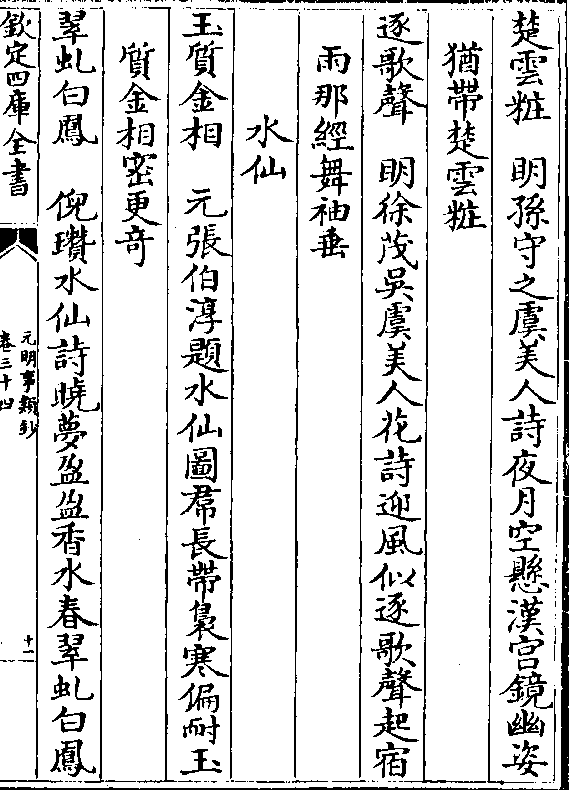 楚雲粧　明孫守之虞美人詩夜月空懸漢宫鏡幽姿
猶帶楚雲粧
逐歌聲　明徐茂吳虞美人花詩迎風似逐歌聲起宿
雨那經舞袖垂
水仙
玉質金相　元張伯淳題水仙圖帬長帶褭寒偏耐玉
質金相密更竒
翠虬白鳳　倪瓚水仙詩曉夢盈盈香水春翠虬白鳳
欽定四庫全書
元明事類鈔
卷三十四
十一